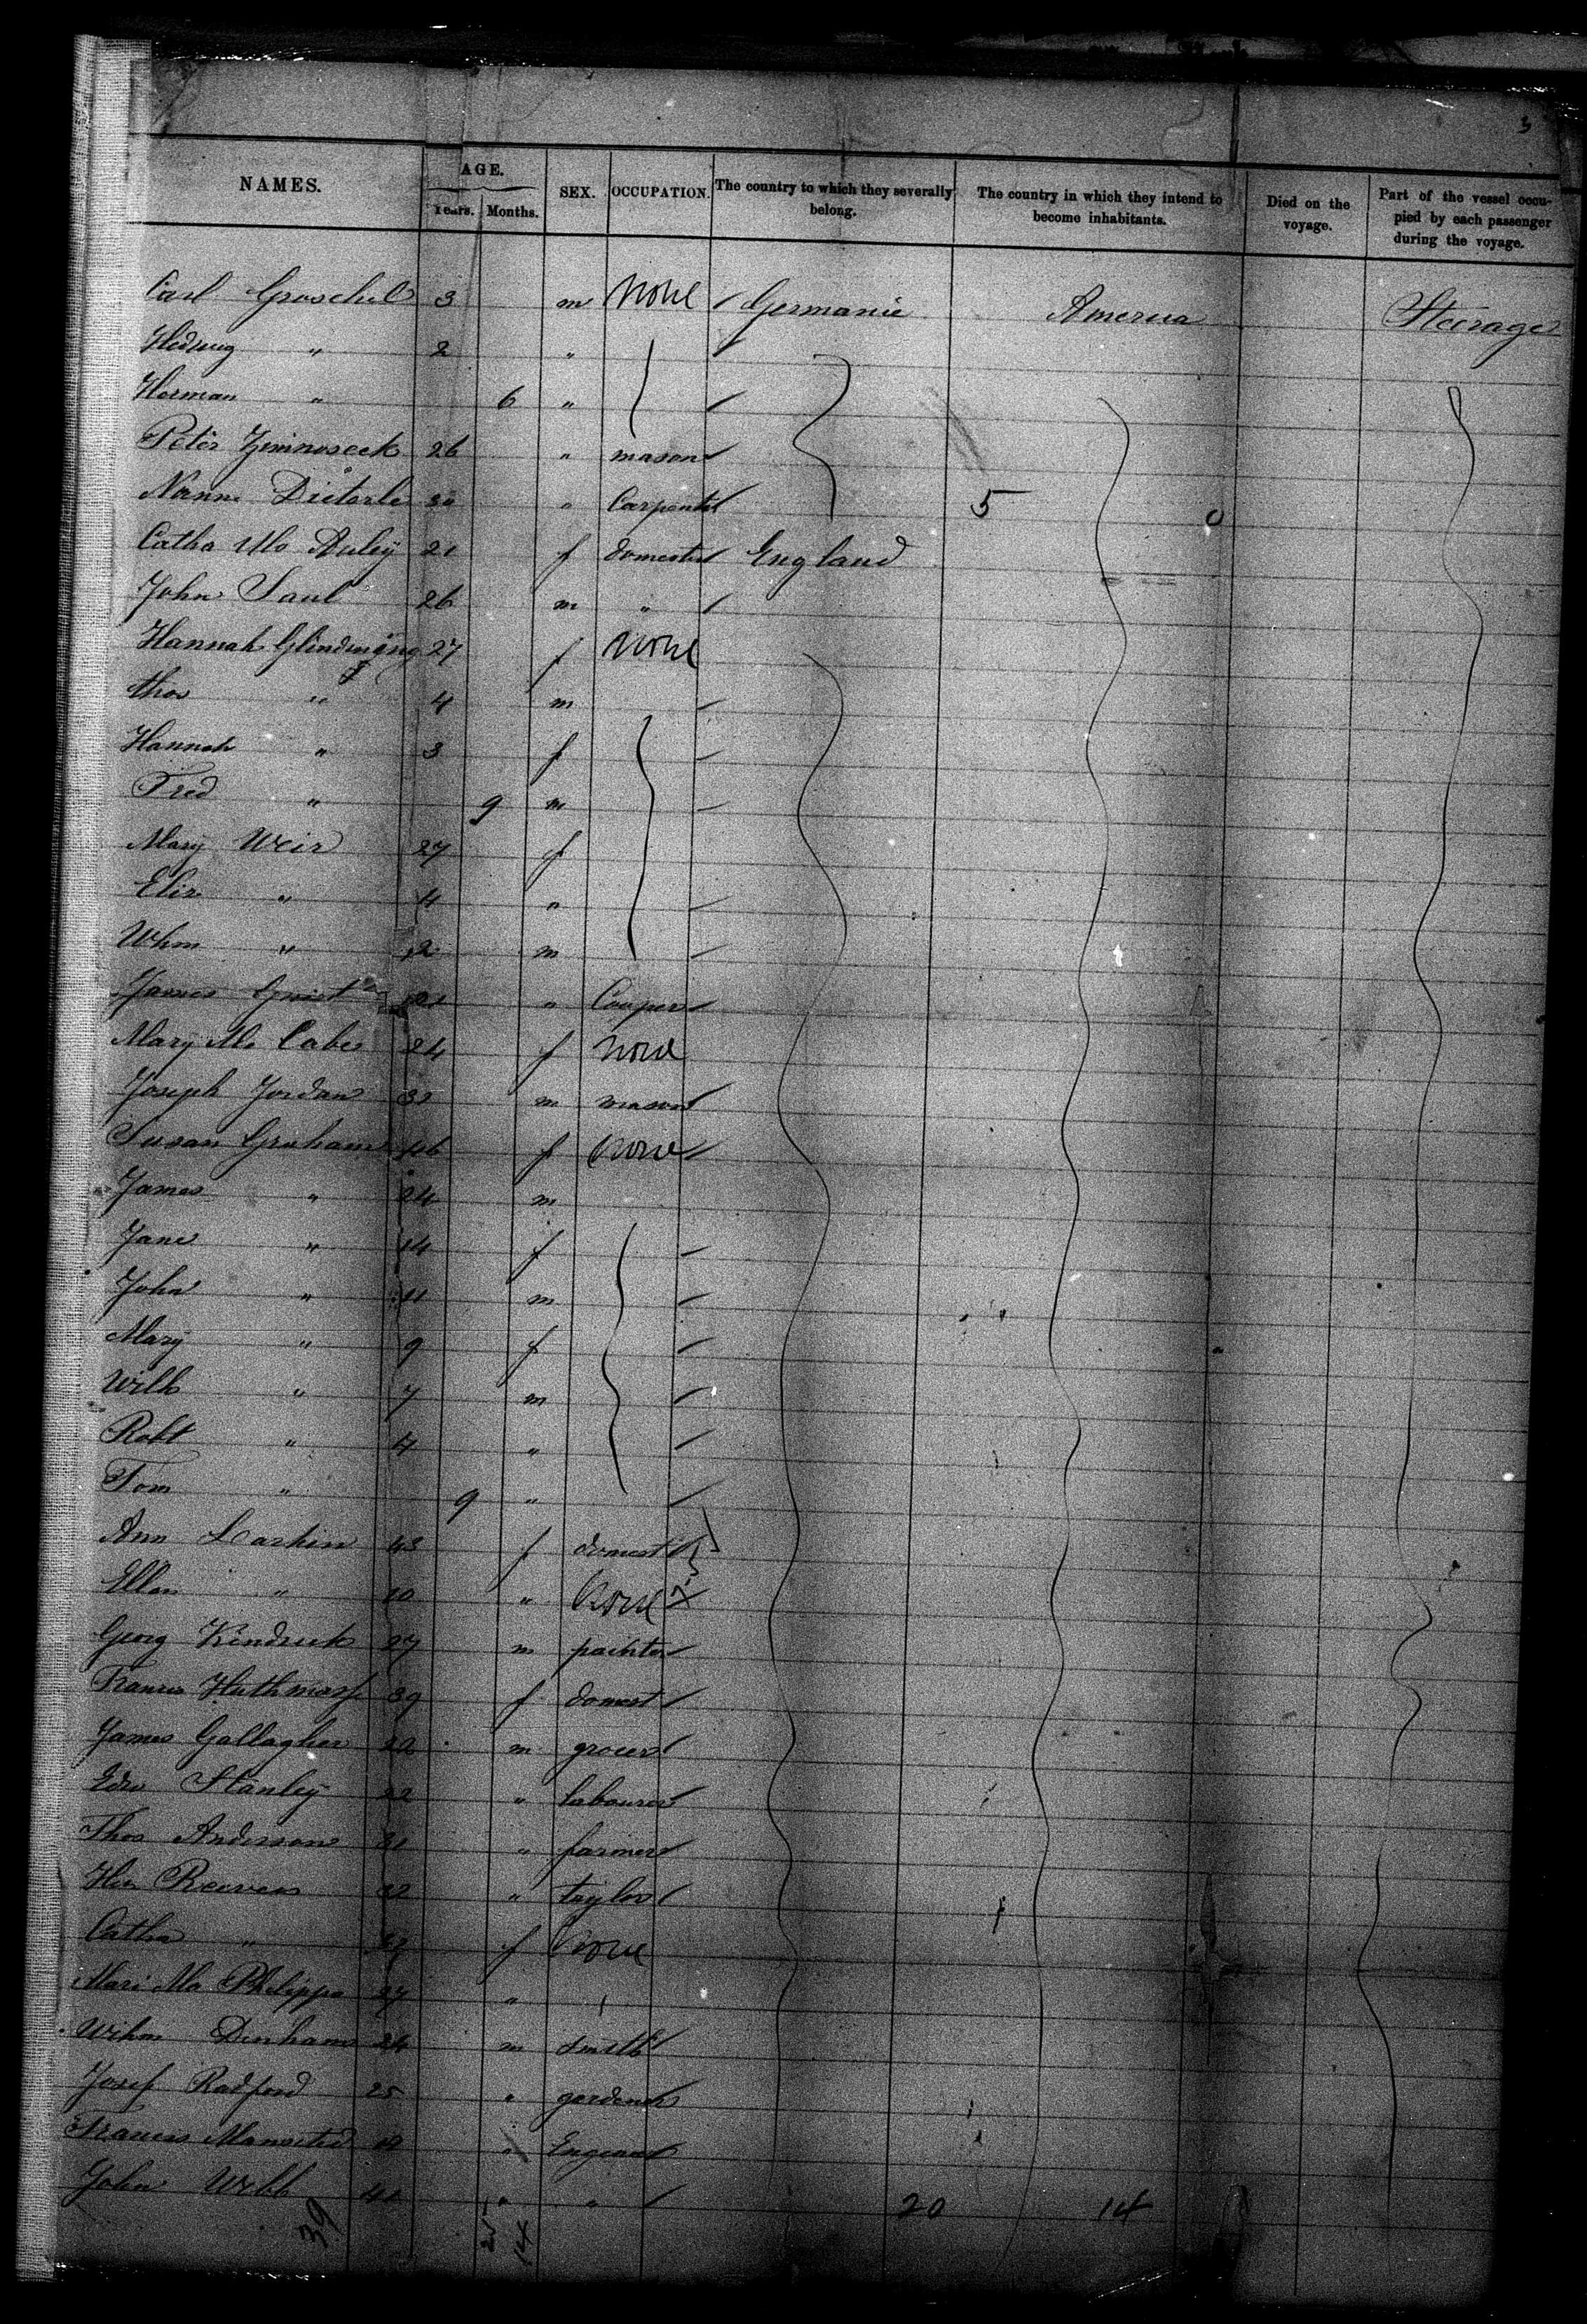 3
NAMES. AGE. SEX. OCCUPATION. The country to which they severally belong. The country in which they intend to become inhabitants. Died on the voyage. Part of the vessel occupied by each passenger during the voyage.
Years. Months.
Carl Groschel 3 m None Germanie America Steerage
Hedwig " 2 "
Herman " 6 "
Peter 26 " mason
Dieterle 30 " Carpenter 5 0
Catha Mc Auley 21 f domestic England
John Saul 26 m "
Hannah Glindining 27 f None
thos " 4 m
Hannah " 3 f
Fred " 9 m
Mary Weir 27 f
Eliz " 4 "
Whm " 2 m
James 21 " Couper
Mary Mc Cabe 24 f None
Joseph Jordan 32 m mason
Susan Graham 46 f None
James " 24 m
Jane " 14 f
John " 11 m
Mary " 9 f
Willm " 7 m
Robt " 4 "
Tom " 9 "
Ann Larkin 43 f domest
Ellen " 10 " None
Georg Kendrick 27 m painter
Frances 39 f domest
James Gallagher 22 m grocer
Edw Stanley 22 " labourer
Thos Anderson 31 " farmer
Hen Reeves 32 " taylor
Catha " f None
Mari Mc Philippa 27 "
Wihm Denham 24 m smith
Josef Radford 25 " gardener
Frances 19 "
John Webb 42 " " 20 14
39 25 14